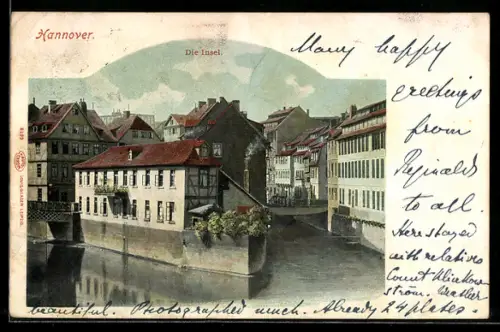 Hannover.
Die Insel.
Many happy
greetings
from
Reginalds
to all.
Here stayed
with relatives
Count Klinkow-
ström. Weather
beautiful. Photographed much. Already 24 plates.